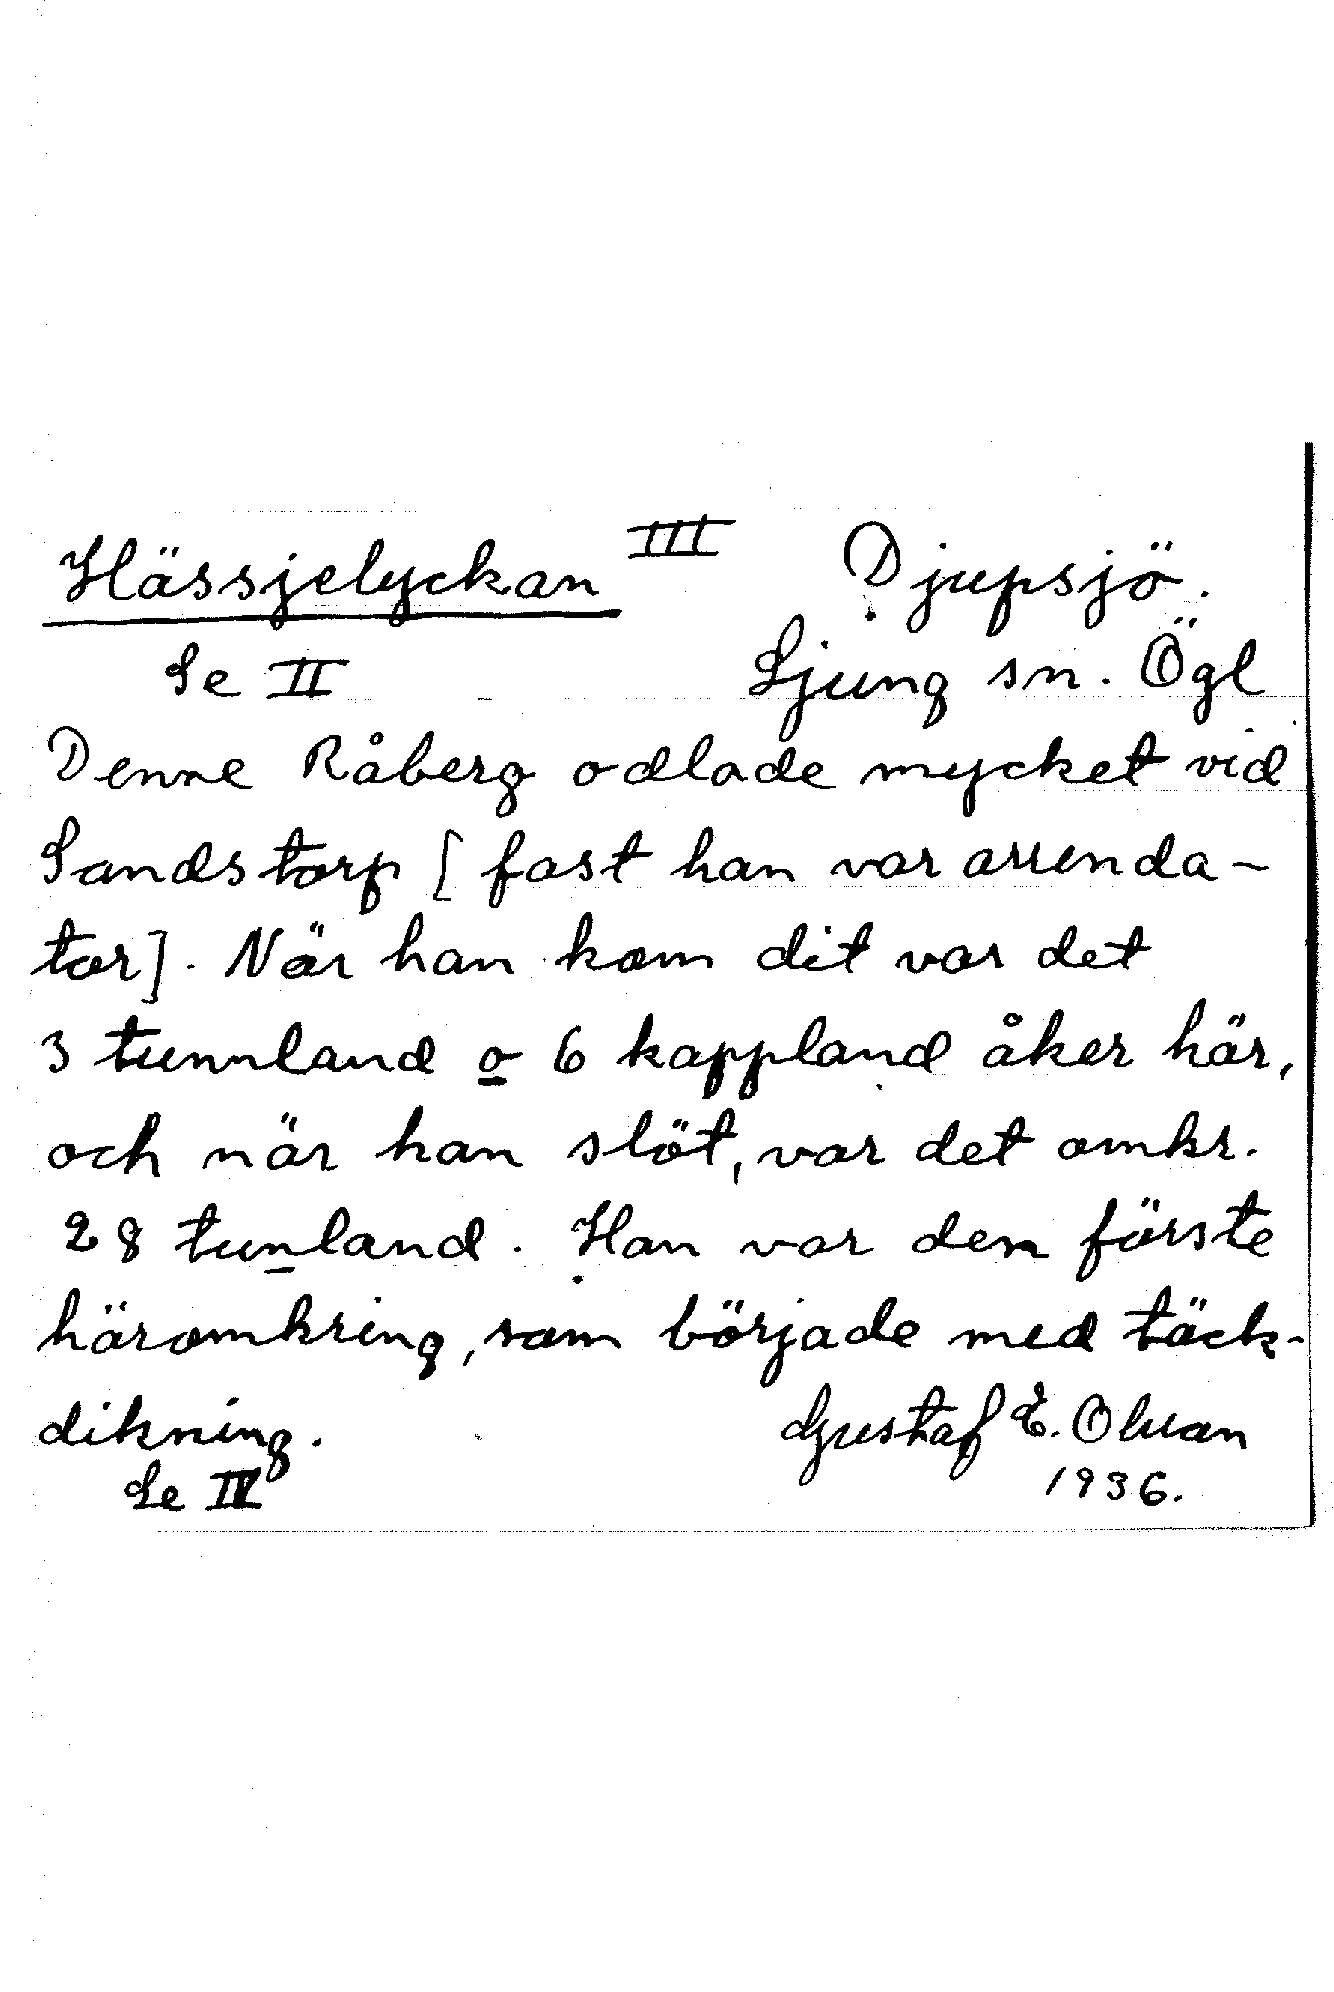 Hässjelyckan III Djupsjö.
Se II Ljung sn. Ögl
Denne Råberg odlade mycket vid
Sandstorp [fast han var arrenda-
tor]. När han kom dit var det
3 tunnland o 6 kappland åker här,
och när han slöt, var det omkr.
28 tunland. Han var den förste
häromkring, som började med täck-
dikning. Gustaf E.
Se IV 1936.